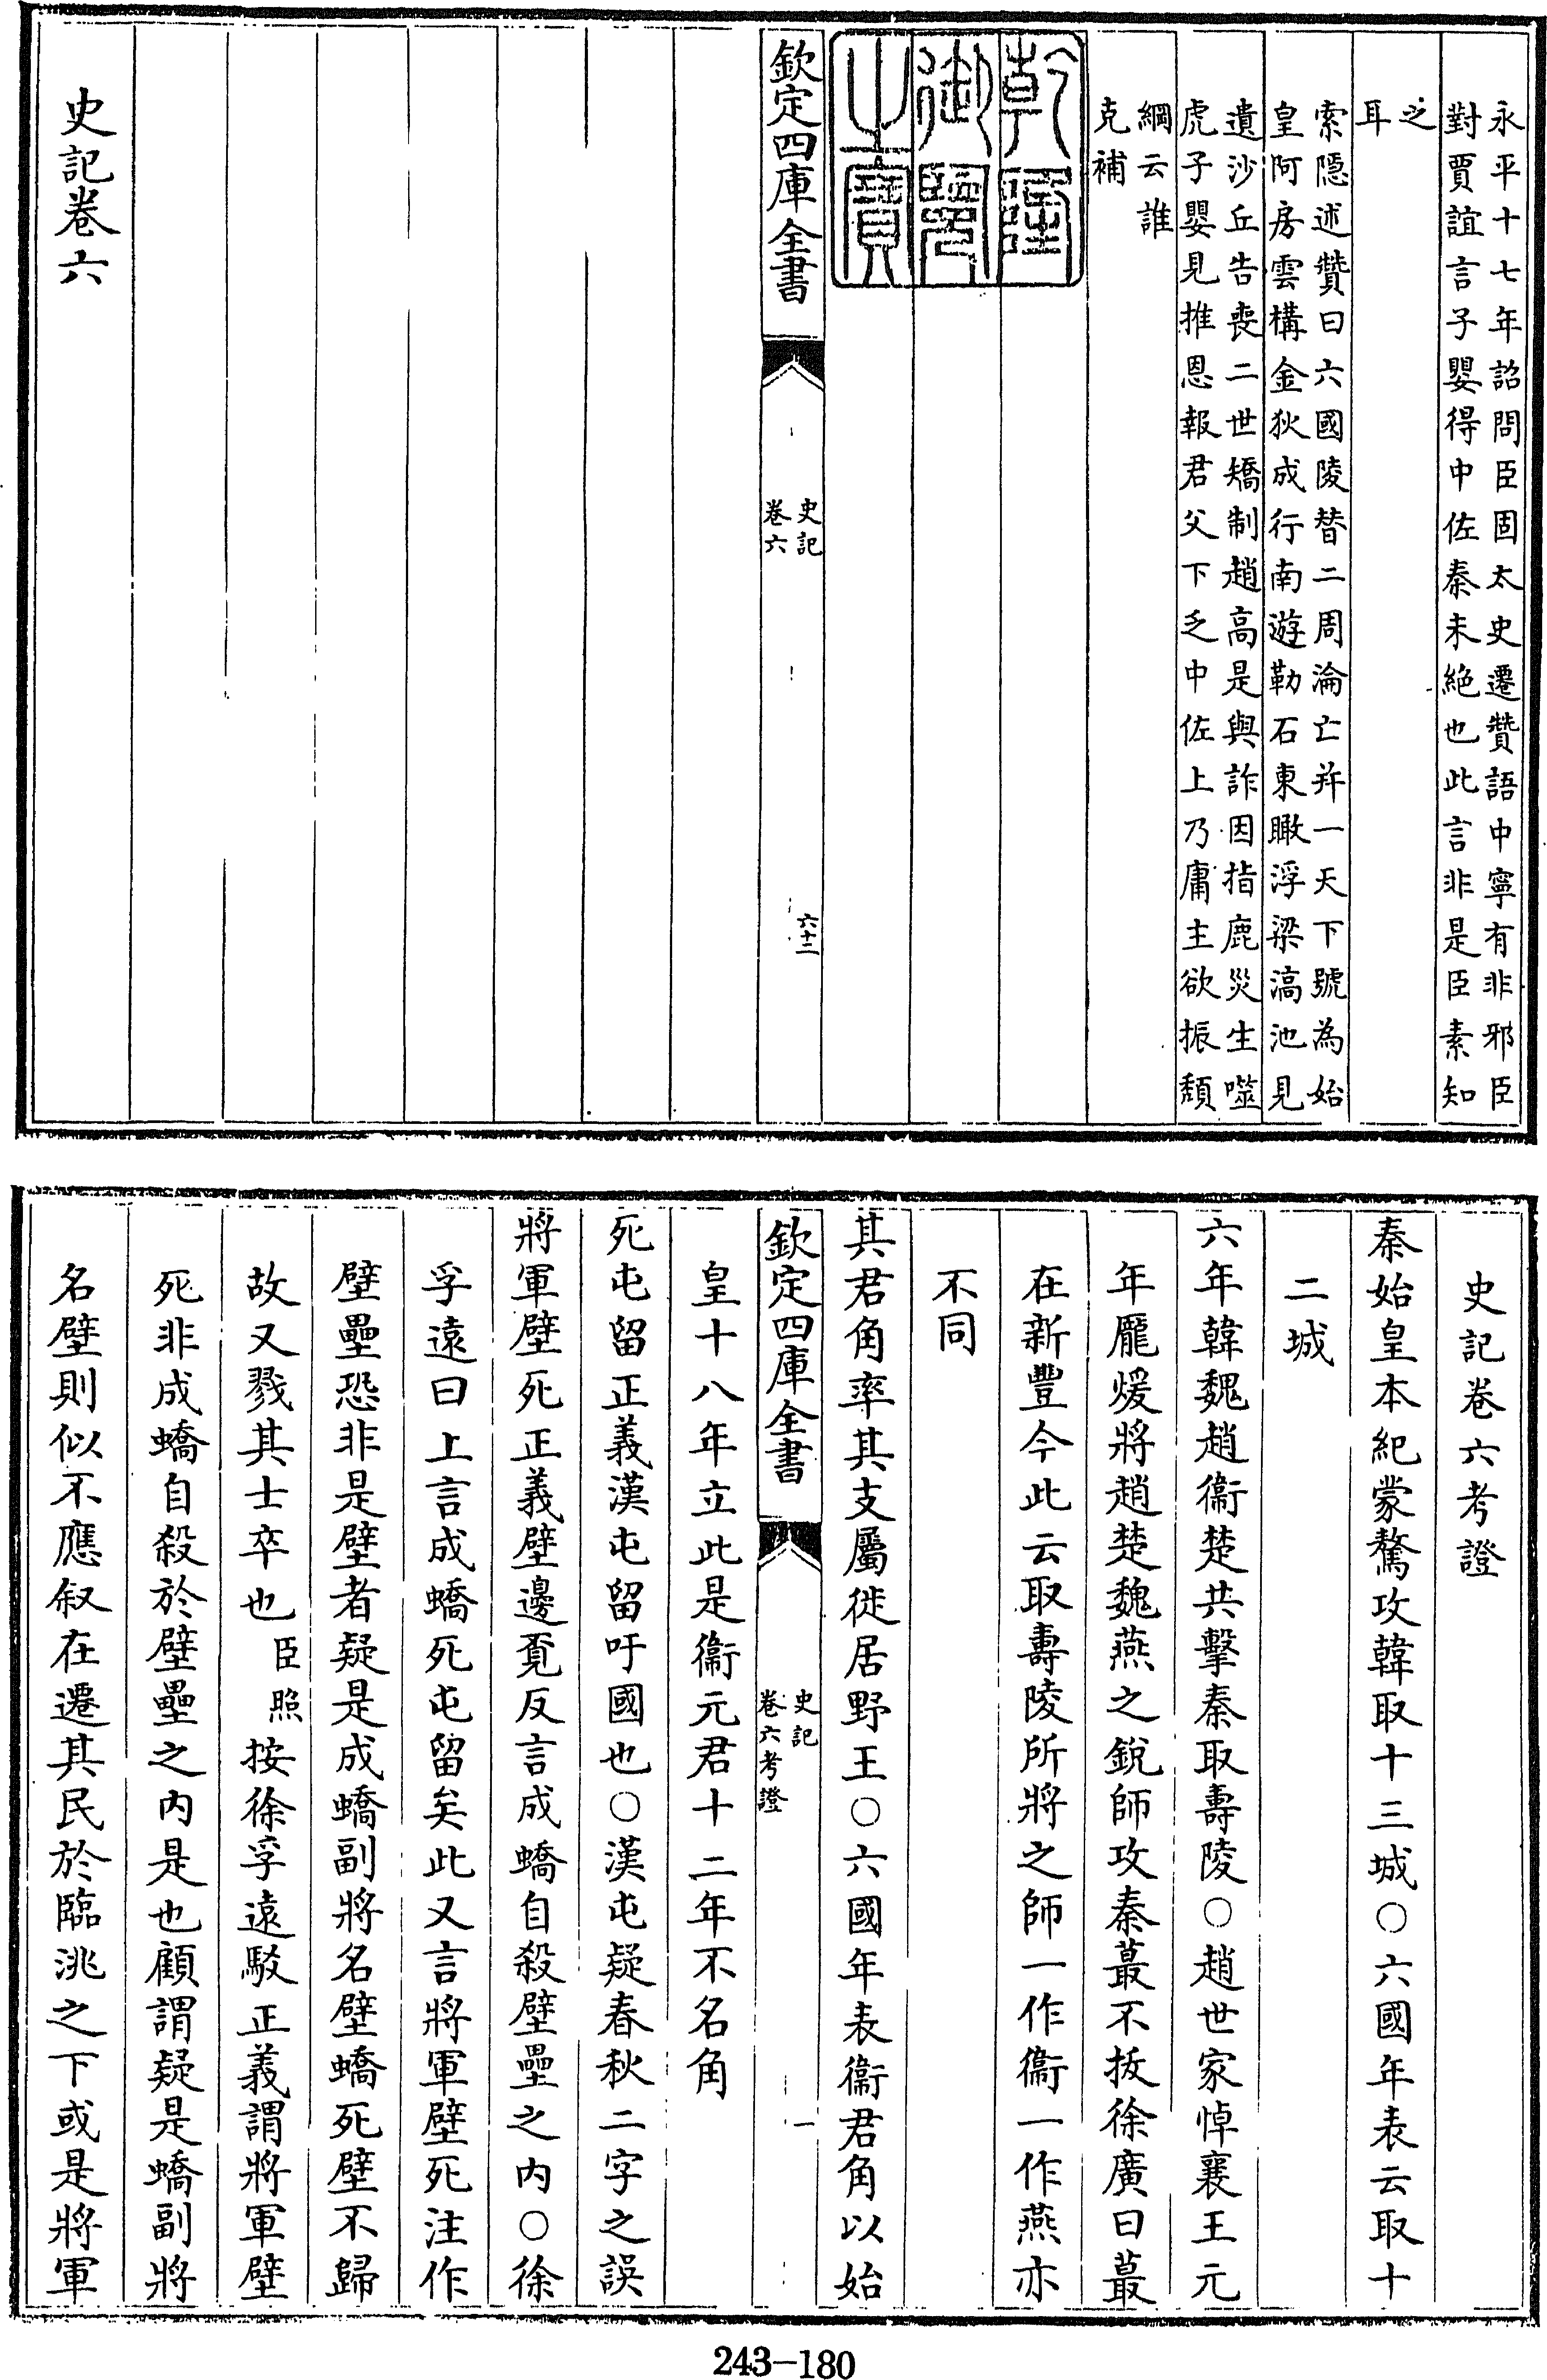 永平十七年詔問臣固太史遷贊語中寧有非邪臣
對賈誼言子嬰得中佐秦未絕也此言非是臣素知
之
耳
索隱述贊曰六國陵替二周淪亡并一天下號為始
皇阿房雲構金狄成行南遊勒石東瞰浮梁滈池見
遺沙丘告喪二世矯制趙高是與詐因指鹿災生噬
虎子嬰見推恩報君父下乏中佐上乃庸主欲振頽
綱云誰
克補
乾隆
御覽
之寶
欽定四庫全書
史記
卷六
六十二
史記卷六
史記卷六考證
秦始皇本紀蒙驁攻韓取十三城○六國年表云取十
二城
六年韓魏趙衞楚共擊秦取壽陵○趙世家悼襄王元
年龎煖將趙楚魏燕之銳師攻秦蕞不拔徐廣曰蕞
在新豐今此云取壽陵所將之師一作衞一作燕亦
不同
其君角率其支屬徙居野王○六國年表衞君角以始
欽定四庫全書
史記
卷六考證
一
皇十八年立此是衞元君十二年不名角
死屯留正義漢屯留吁國也○漢屯疑春秋二字之誤
將軍壁死正義壁邊覔反言成蟜自殺壁壘之内○徐
孚遠曰上言成蟜死屯留矣此又言將軍壁死注作
壁壘恐非是壁者疑是成蟜副將名壁蟜死壁不歸
故又戮其士卒也臣照按徐孚遠駁正義謂將軍壁
死非成蟜自殺於壁壘之内是也顧謂疑是蟜副將
名壁則似不應叙在遷其民於臨洮之下或是將軍
243-180